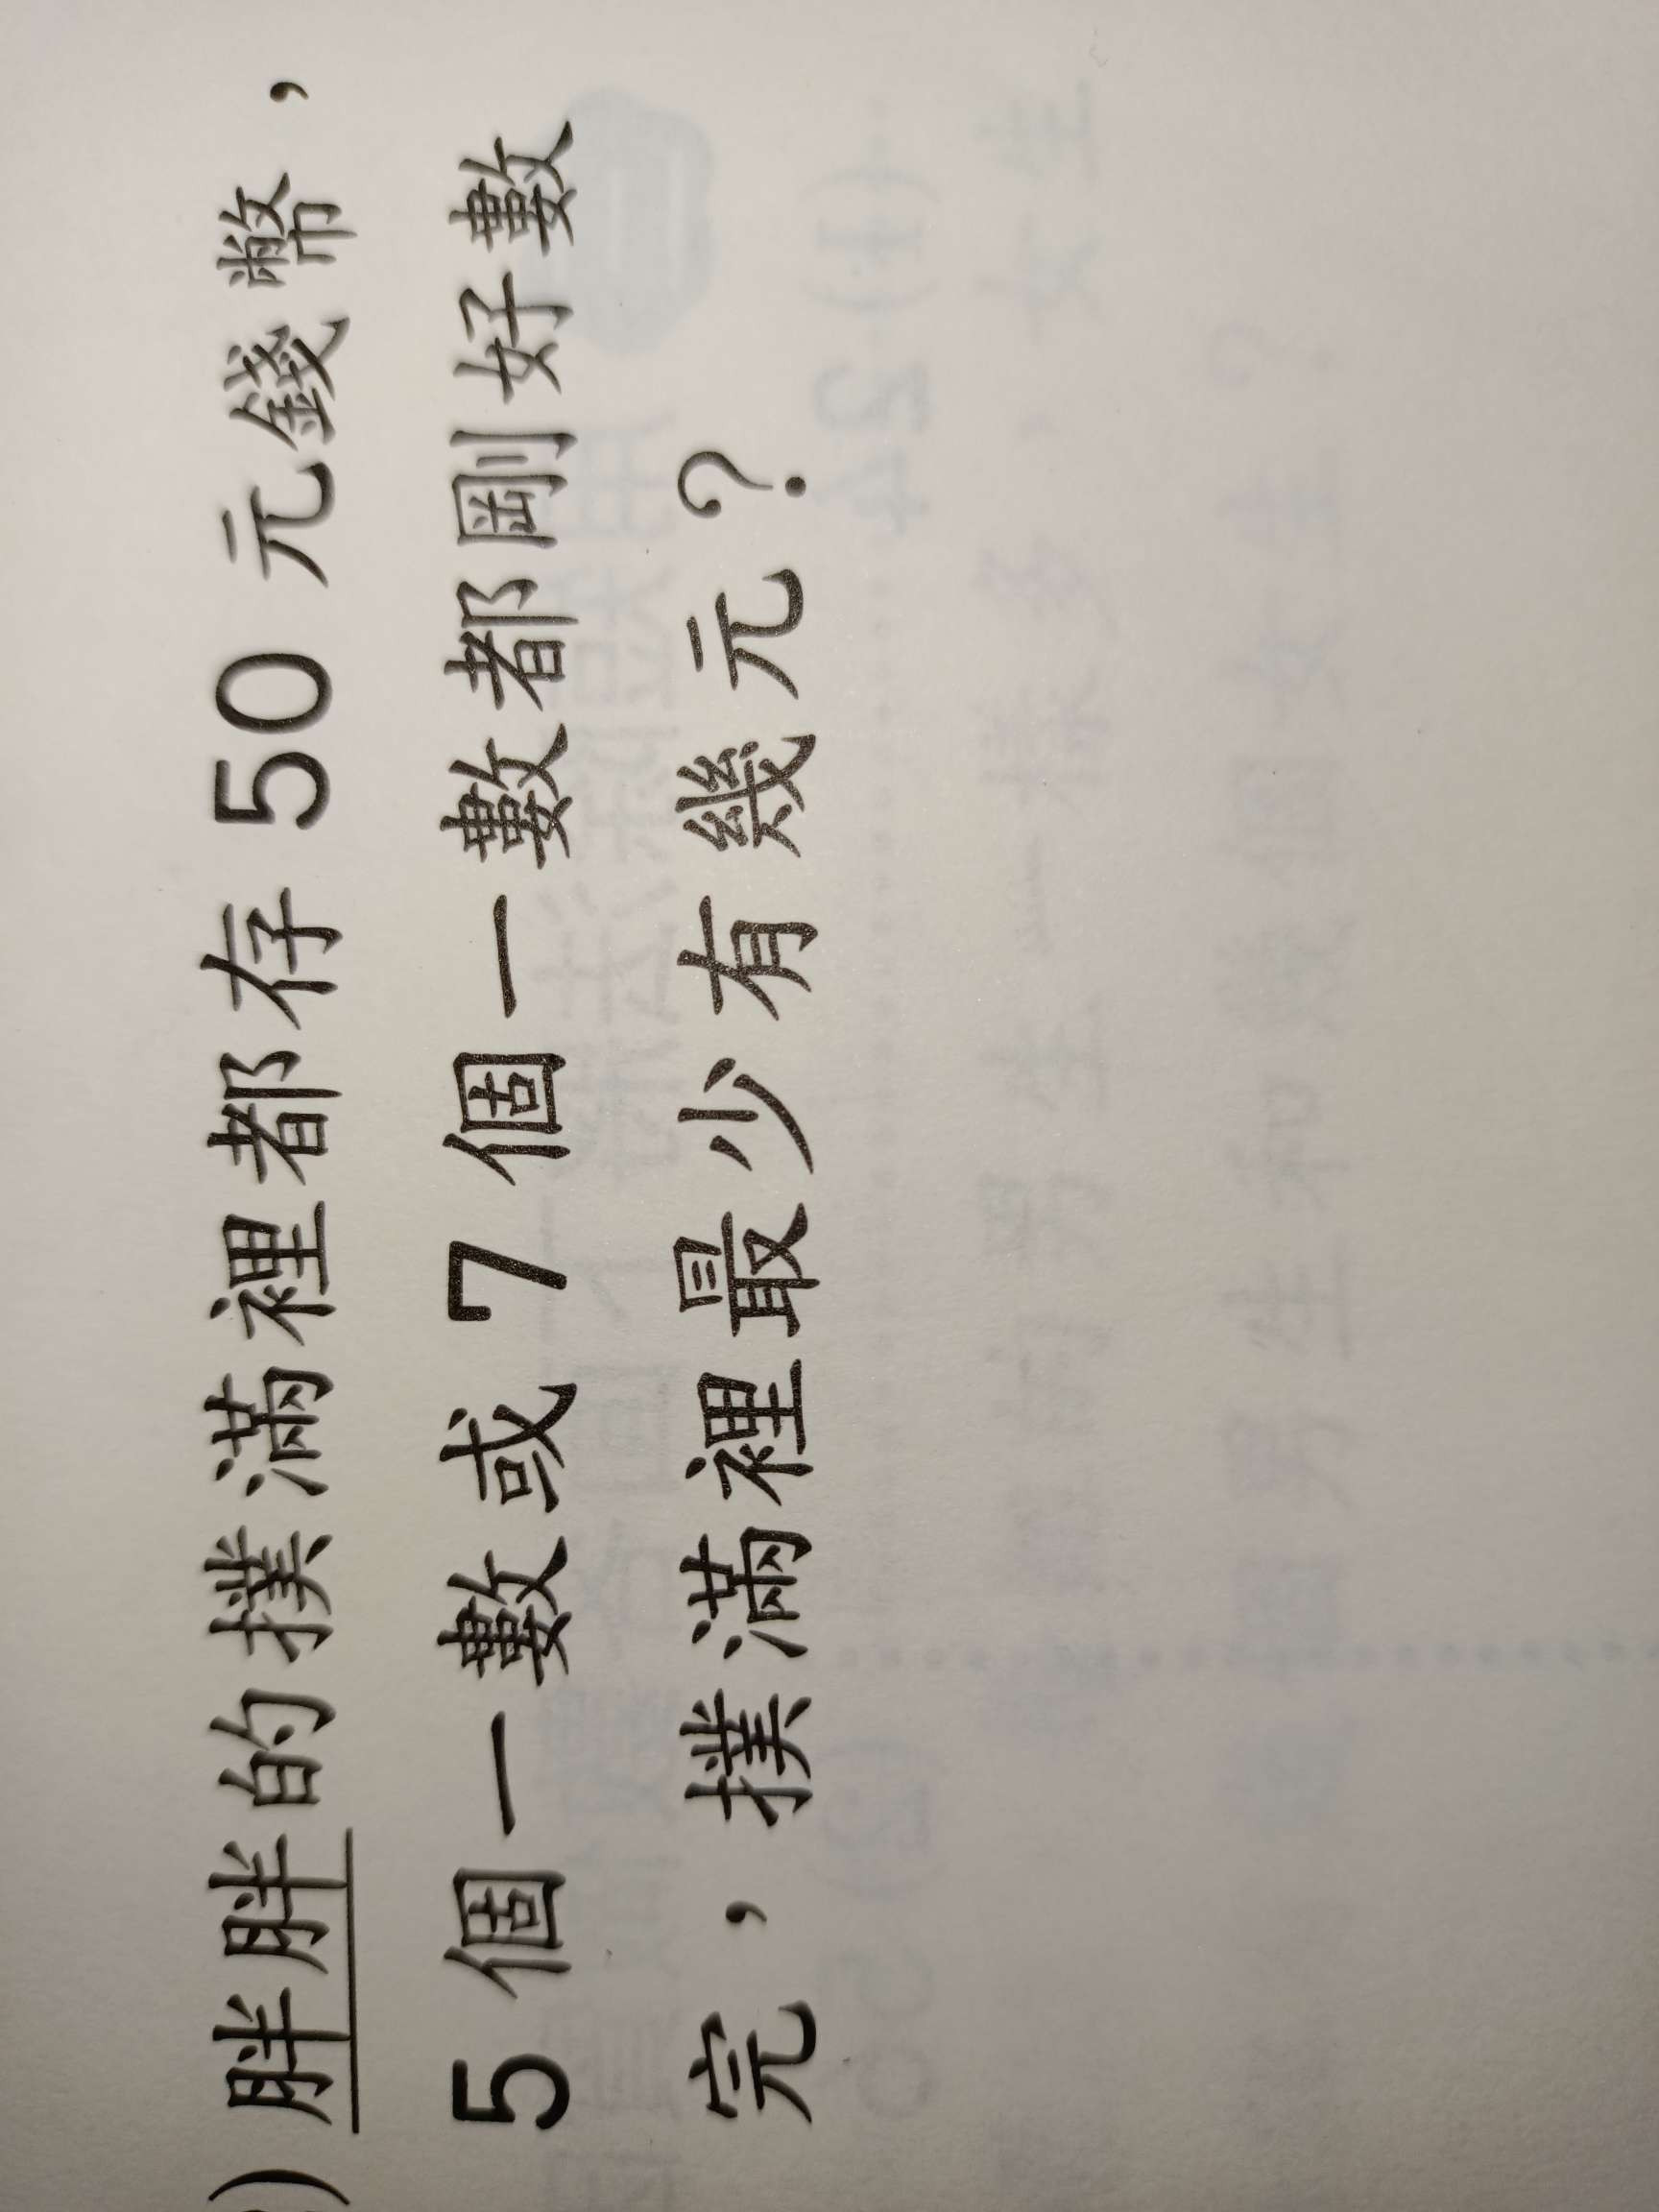 )胖胖的撲滿裡都存 50 元錢幣，
5 個一數或 7 個一數都剛好數
完，撲滿裡最少有幾元？